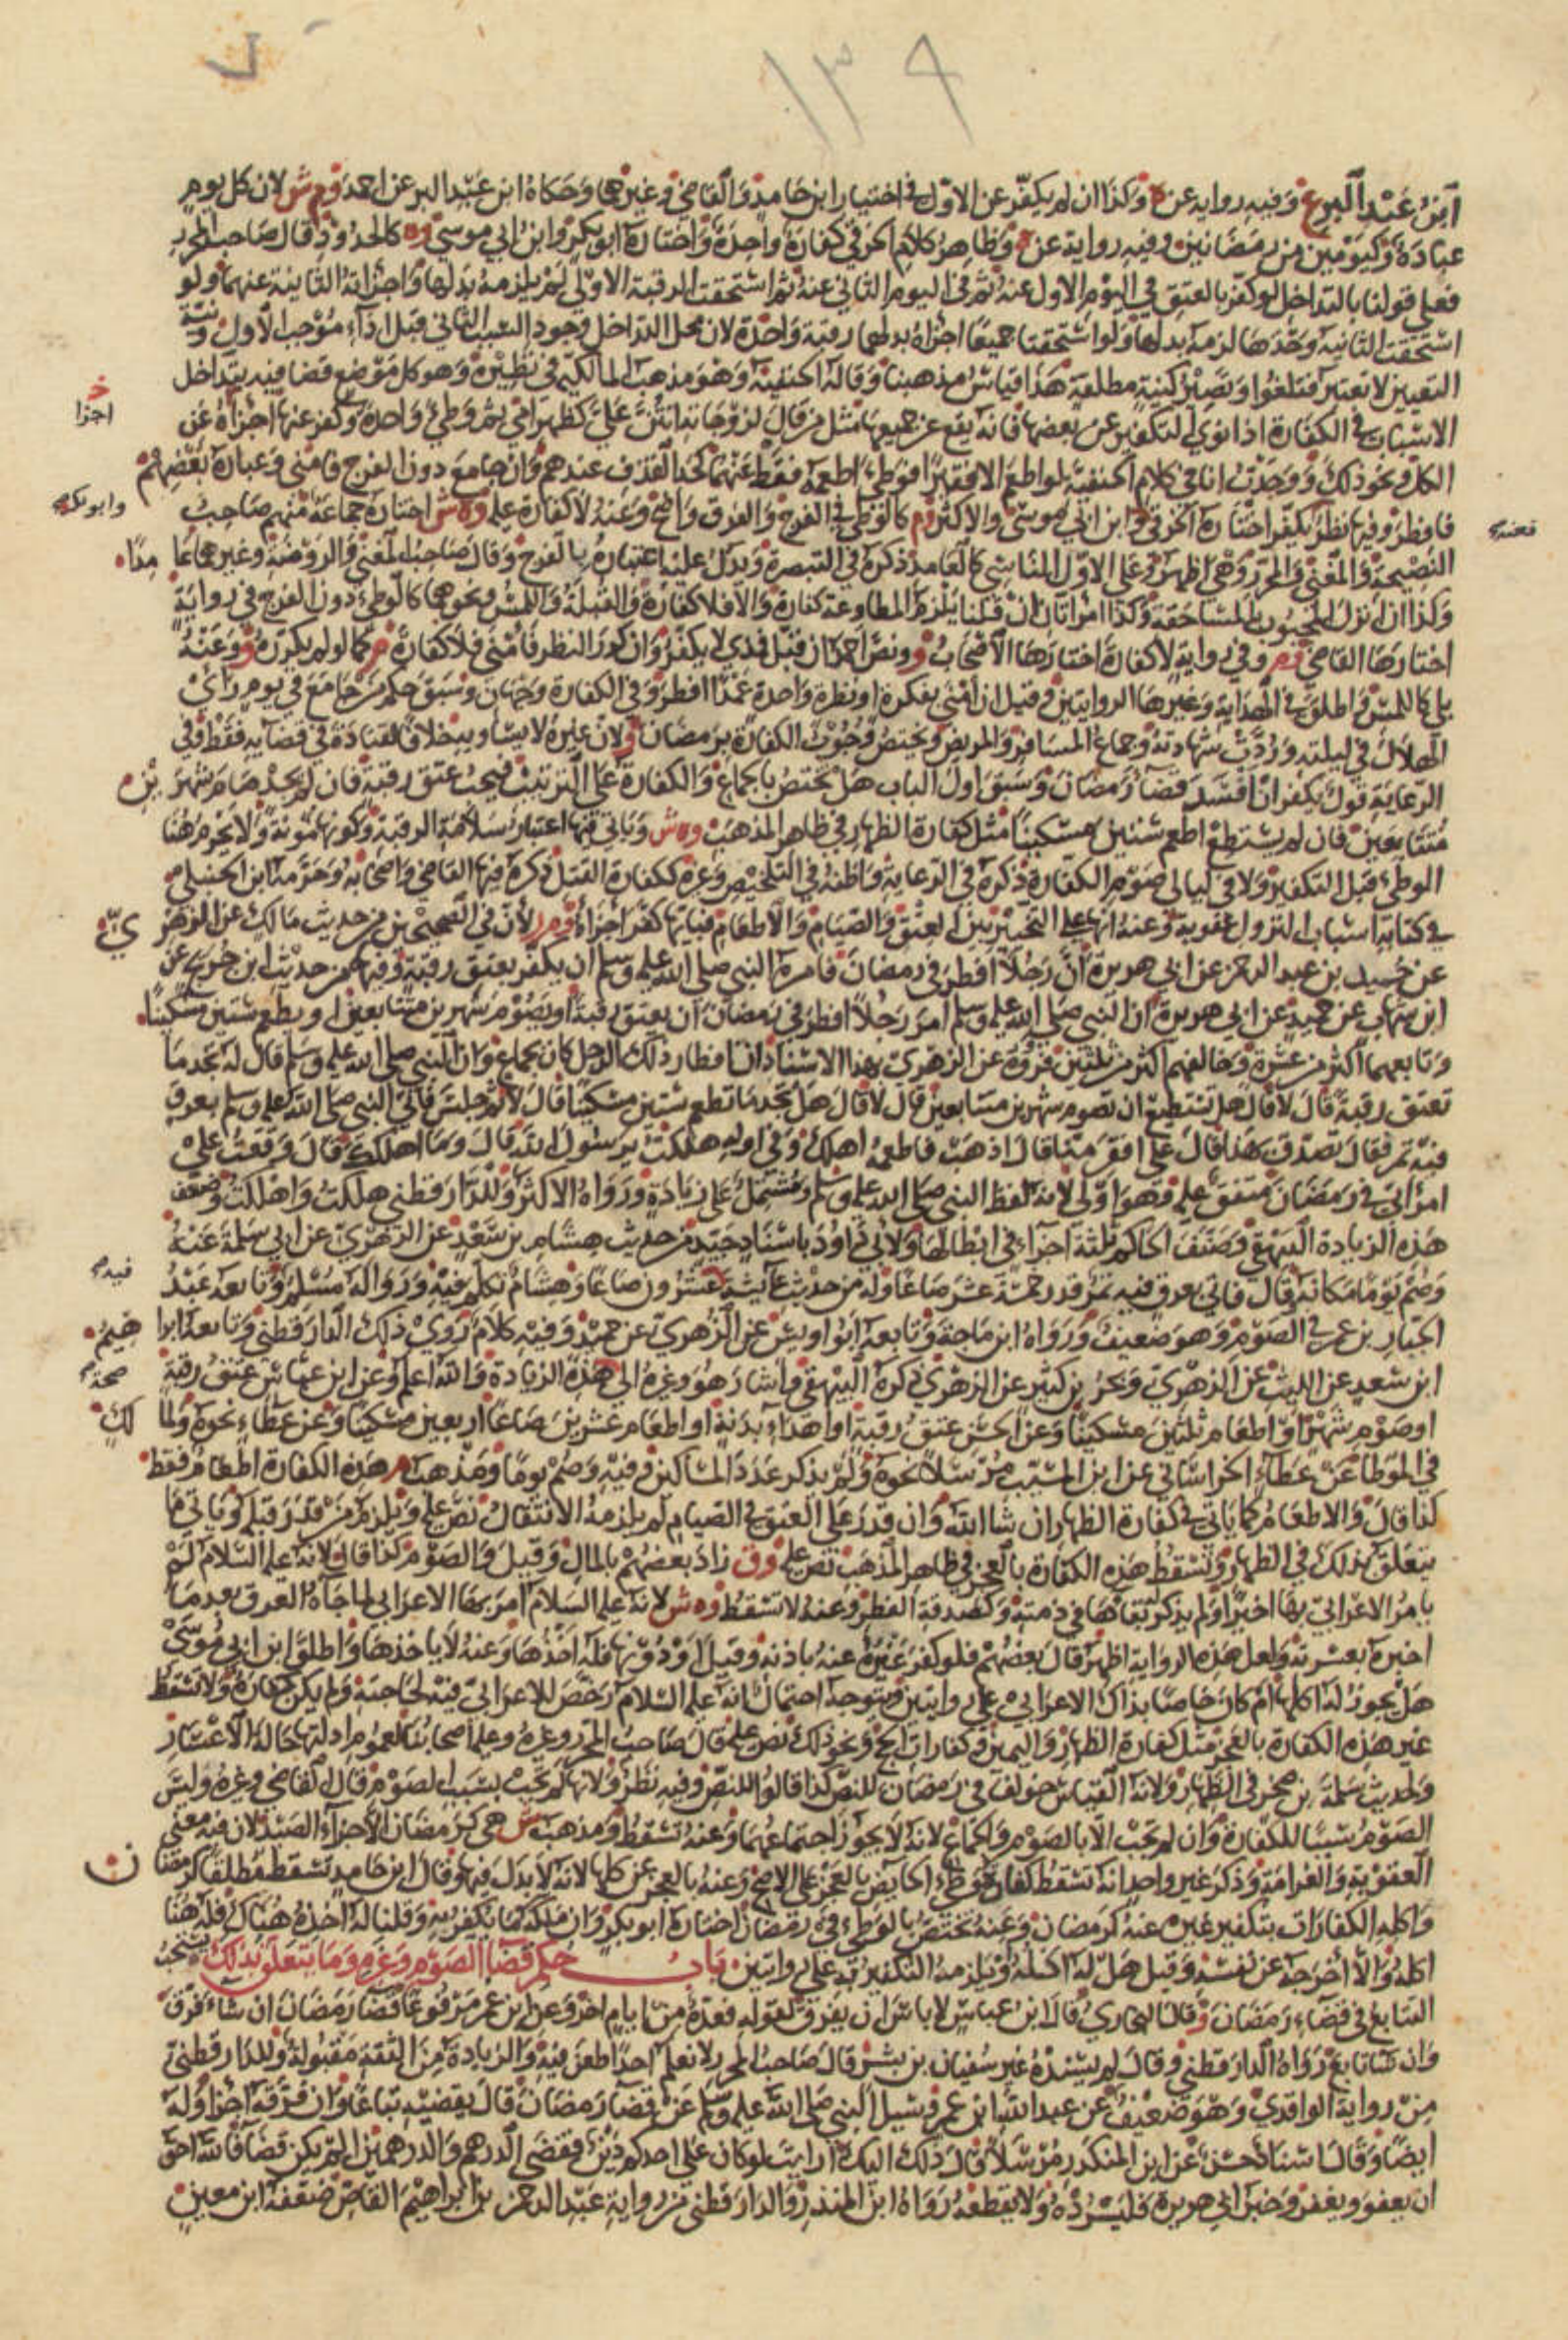 ١٣٩
ابن عبد البر ع وفيه رواية عن م وكذا ان لم يكفر عن الاول في اختيار ابن حامد والقاضي وغيرهما وحكاه ابن عبد البر عن احمد و م ش لان كل يوم
عبادة وكيومين من رمضانين وفيه رواية عن وظاهر كلام الخرقي كفارة واحدة واختاره ابو بكر وابن ابي موسى وه كالحدود قال صاحب المحرر
فعلى قولنا بالتداخل لو كفر بالعتق في اليوم الاول عنه ثم في اليوم الثاني عنه ثم استحقت الرقبة الاولى لم يلزمه بدلها واجزاته الثانية عنهما ولو
استحقت الثانية وحدها لزمه بدلها ولو استحقتا جميعا اجزاه بدلهما رقبة واحدة لان محل التداخل وجود السبب الثاني قبل اداء موجب الاول ونية
التعيين لا تعتبر فتلغوا وتصير كنية مطلقة هذا قياس مذهبنا وقاله الحنفية وهو مذهب المالكية في نظيره وهو كل موضع قضا فيه بتداخل
الاسباب في الكفارة اذا نوى التكفير عن بعضها فانه يقع عن جميعها مثل من قال لزوجاته انتن علي كظهر امي ثم وطئ واحدة وكفر عنها اجزاه عن
خ
اجزا
الكل ونحو ذلك ووجدت انا في كلام الحنفية لو اطعم الا فقيرا فوطئ اطعمه فقط عنهما كحد القذف عندهم وان جامع دون الفرج فامنى وعبارة بعضهم
فافطر وفيها نظر يكفر اختاره الخرقي وابن ابي موسى والاكثر وم كالوطئ في الفرج والفرق واضح وعنه لا كفارة عليه وه ش اختاره جماعة منهم صاحب
وابو بكر
النصيحة والمغني والمحرر وهي اظهر وعلى الاول الناسي كالعامد ذكره في التبصرة ويدل عليه اعتباره بالفرج وقال صاحب المغني والروضة وغيرهما عامدا
وكذا ان انزل المجبوب بالمساحقة وكذا امراتان ان قلنا يلزم المطاوعة كفارة والا فلا كفارة والقبلة واللمس ونحوهما كالوطئ دون الفرج في رواية
اختارها القاضي وم وفي رواية لا كفارة اختارها الاصحاب و ونص احمد ان قبل فمذي لا يكفر وان كرر النظر فامنى فلا كفارة كما لو لم يكرره وو وعنه
بلى كاللمس واطلق في الهداية وغيرها الروايتين وقيل ان امنى بفكرة او نظرة واحدة عمدا افطر وفي الكفارة وجهان وسبق حكم من جامع في يوم راى
الهلال في ليلته وردت شهادته وجماع المسافر والمريض ويختص وجوب الكفارة برمضان ولان غيره لا يساويه بخلافا لقتادة في قضايه فقط وفي
الرعاية قول يكفر ان افسد قضا رمضان وسبق اول الباب هل يختص بالجماع والكفارة على الترتيب فيجب عتق رقبة فان لم يجدها صام شهرين
متتابعين فان لم يستطع اطعم ستين مسكينا مثل كفارة الظهار في ظاهر المذهب وه ش وياتي فيها اعتبار سلامة الرقبة وكونها مومنة ولا يحرم هنا
الوطئ قبل التكفير ولا في ليالي صوم الكفارة ذكره في الرعاية واظنه في التلخيص وغيره ككفارة القتل ذكره فيها القاضي واصحابه وحرمه ابن الحنبلي
في كتابه اسباب النزول عقوبة وعنه انها على التخيير بين العتق والصيام والاطعام فبايها كفر اجزاه وم لان في الصحيحين من حديث مالك عن الزهري
عن حميد بن عبد الرحمن عن ابي هريرة ان رجلا افطر في رمضان فامره النبي صلى الله عليه وسلم ان يكفر بعتق رقبة وفيهما من حديث ابن جريج عن
ابن شهاب عن حميد عن ابي هريرة ان النبي صلى الله عليه وسلم امر رجلا افطر في رمضان ان يعتق رقبة او يصوم شهرين متتابعين او يطعم ستين مسكينا
وتابعهما اكثر من عشرة وخالفهم اكثر من ثلثين فرووه عن الزهري بهذا الاسناد ان افطار ذلك الرجل كان بجماع وان النبي صلى الله عليه وسلم قال له تجد ما
تعتق رقبة قال لا قال هل تستطيع ان تصوم شهرين متتابعين قال لا قال هل تجد ما تطعم ستين مسكينا قال لا ثم جلس فاتي النبي صلى الله عليه وسلم بعرق
فيه تمر فقال تصدق بهذا قال على افقر منا قال اذهب فاطعمه اهلك وفي اوله هلكت يرسول الله قال وما اهلكك قال وقعت على
امراتي في رمضان متفق عليه وهو اولى لانه لفظ النبي صلى الله عليه وسلم ومشتمل على زيادة ورواه الاكثر وللدارقطني هلكت واهلكت وضعف
هذه الزيادة البيهقي وصنف الحاكم ثلثة اجزاء في ابطالها ولابي داود باسناد جيد من حديث هشام بن سعد عن الزهري عن ابي سلمة عنه
وصم يوما مكانه وقال فاتي بعرق فيه تمر قدر خمسة عشر صاعا وله من حديث عايشة عشرون صاعا وهشام تكلم فيه وروى له مسلم وتابعه عبد
فيه
الجبار بن عمر في الصوم وهو ضعيف ورواه ابن ماجة وتابعه ابو اويس عن الزهري عن حميد وفيه كلام روى ذلك الدارقطني وتابعه ابراهيم
ابن سعد عن الليث عن الزهري وبحر بن كنيز عن الزهري ذكره البيهقي واشار هو وغيره الى صحة هذه الزيادة والله اعلم وعن ابن عباس عتق رقبة
او صوم شهر او اطعام ثلثين مسكينا وعن الحسن عتق رقبة او اهداء بدنة او اطعام عشرين صاعا اربعين مسكينا وعن عطاء نحوه ولمالك
في الموطا عن عطاء الخراساني عن ابن المسيب مرسلا نحوه ولم يذكر عدد المساكين وفيه وصم يوما ومذهب م هذه الكفارة اطعام فقط
كذا قال والاطعام كما ياتي في كفارة الظهار ان شا الله وان قدر على العتق في الصيام لم يلزمه الانتقال نص عليه ويلزم من قدر قبله وياتي ما
يتعلق بذلك في الظهار وتسقط هذه الكفارة بالعجز في ظاهر المذهب نص عليه وق زاد بعضهم بالمال وقيل والصوم كذا قال لانه عليه السلام لم
يامر الاعرابي بها اخيرا ولم يذكر بقاها في ذمته وكصدقة الفطر وعنه لا تسقط وه ش لانه عليه السلام امر بها الاعرابي لما جاه العرق بعد ما
اخبره بعسرته ولعل هذه الرواية اظهر قال بعضهم فلو كفر غيره عنه باذنه وقيل او دونه فله اخذها وعنه لا ياخذها واطلق ابن ابي موسى
هل يجوز له اكلها ام كان خاصا بذاك الاعرابي على روايتين ويتوجه احتمال انه عليه السلام رخص للاعرابي فيه لحاجته ولم يكن كفارة ولا تسقط
غير هذه الكفارة بالعجز مثل كفارة الظهار واليمين وكفارات الحج ونحو ذلك نص عليه قال صاحب المحرر وغيره وعليه اصحابنا لعموم ادلتها حالة الاعسار
ولحديث سلمة بن صخر في الظهار ولانه القياس خولف في رمضان للنص كذا قالوا للنص وفيه نظر ولانها لم تجب بسبب الصوم قال القاضي وغيره وليس
الصوم سببا للكفارة وان لم تجب الا بالصوم والجماع لانه لا يجوز اجتماعهما وعنه تسقط ومذهب ش هي كرمضان الا جزاء الصيد لان فيه معنى
العقوبة والغرامة وذكر غير واحد انه تسقط كفارة وطئ الحايض بالعجز على الاصح وعنه بالعجز عن كلها لانه لا بدل فيها وقال ابن حامد تسقط مطلقا كرمضان
واكله الكفارات بتكفير غيره عنه كرمضان وعنه تختص بالوطئ في رمضان اختاره ابو بكر وان ملكه ما يكفر به وقلنا له اخذه هناك فله هنا
اكله والا اخرجه عن نفسه وقيل هل له اكله او يلزمه التكفير به على روايتين باب حكم قضا الصوم وغيره وما يتعلق بذلك يستحب
التتابع في قضاء رمضان و قال البخاري قال ابن عباس لا باس ان يفرق لقوله فعدة من ايام اخر وعن ابن عمر مرفوعا قضا رمضان ان شاء فرق
وان شا تابع رواه الدارقطني وقال لم يسنده غير سفيان بن بشر قال صاحب المحرر لا نعلم احدا طعن فيه والزيادة من الثقة مقبولة وللدارقطني
من رواية الواقدي وهو ضعيف عن عبد الله بن عمرو سيل النبي صلى الله عليه وسلم عن قضا رمضان قال يقضيه تباعا وان فرقه اجزا وله
ايضا وقال اسناد حسن عن ابن المنكدر مرسلا قال ذلك اليك ارايت لو كان على احدكم دين فقضى الدرهم والدرهمين الم يكن قضا فالله احق
ان يعفو ويغفر وخبر ابي هريرة فليسرده ولا يقطعه رواه ابن المنذر والدارقطني من رواية عبد الرحمن بن ابراهيم القاص ضعفه ابن معين